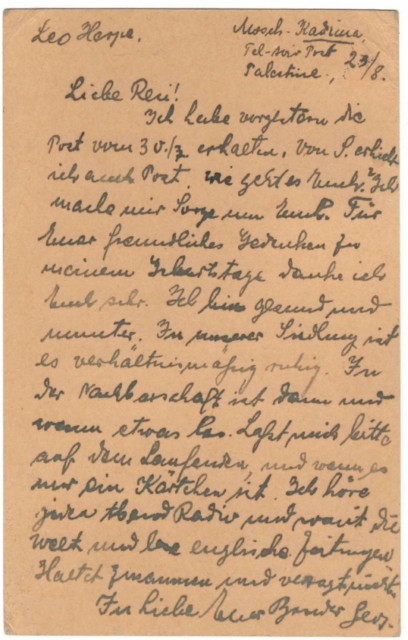 Leo Herpe.
Mosch. Kadima
Tel-              Post
Palestine, 23/8.
Liebe Resi!
Ich habe vorgestern die
Post vom 30./7. erhalten, von P. erhielt
ich auch Post. Wie geht es Euch? Ich
mache mir Sorge um Euch. Für
Euer freundliches Gedenken zu
meinem Geburtstage danke ich
Euch sehr. Ich bin gesund und
munter. In unserer Siedlung ist
es verhältnismäßig ruhig. In
der Nachbarschaft ist dann und
wann etwas los. Laßt mich bitte
auf dem Laufenden, und wenn es
nur ein Kärtchen ist. Ich höre
jeden Abend Radio und die
Welt und lese englische Zeitungen
Haltet zusammen und verzagt nicht.
In Liebe Euer Bruder